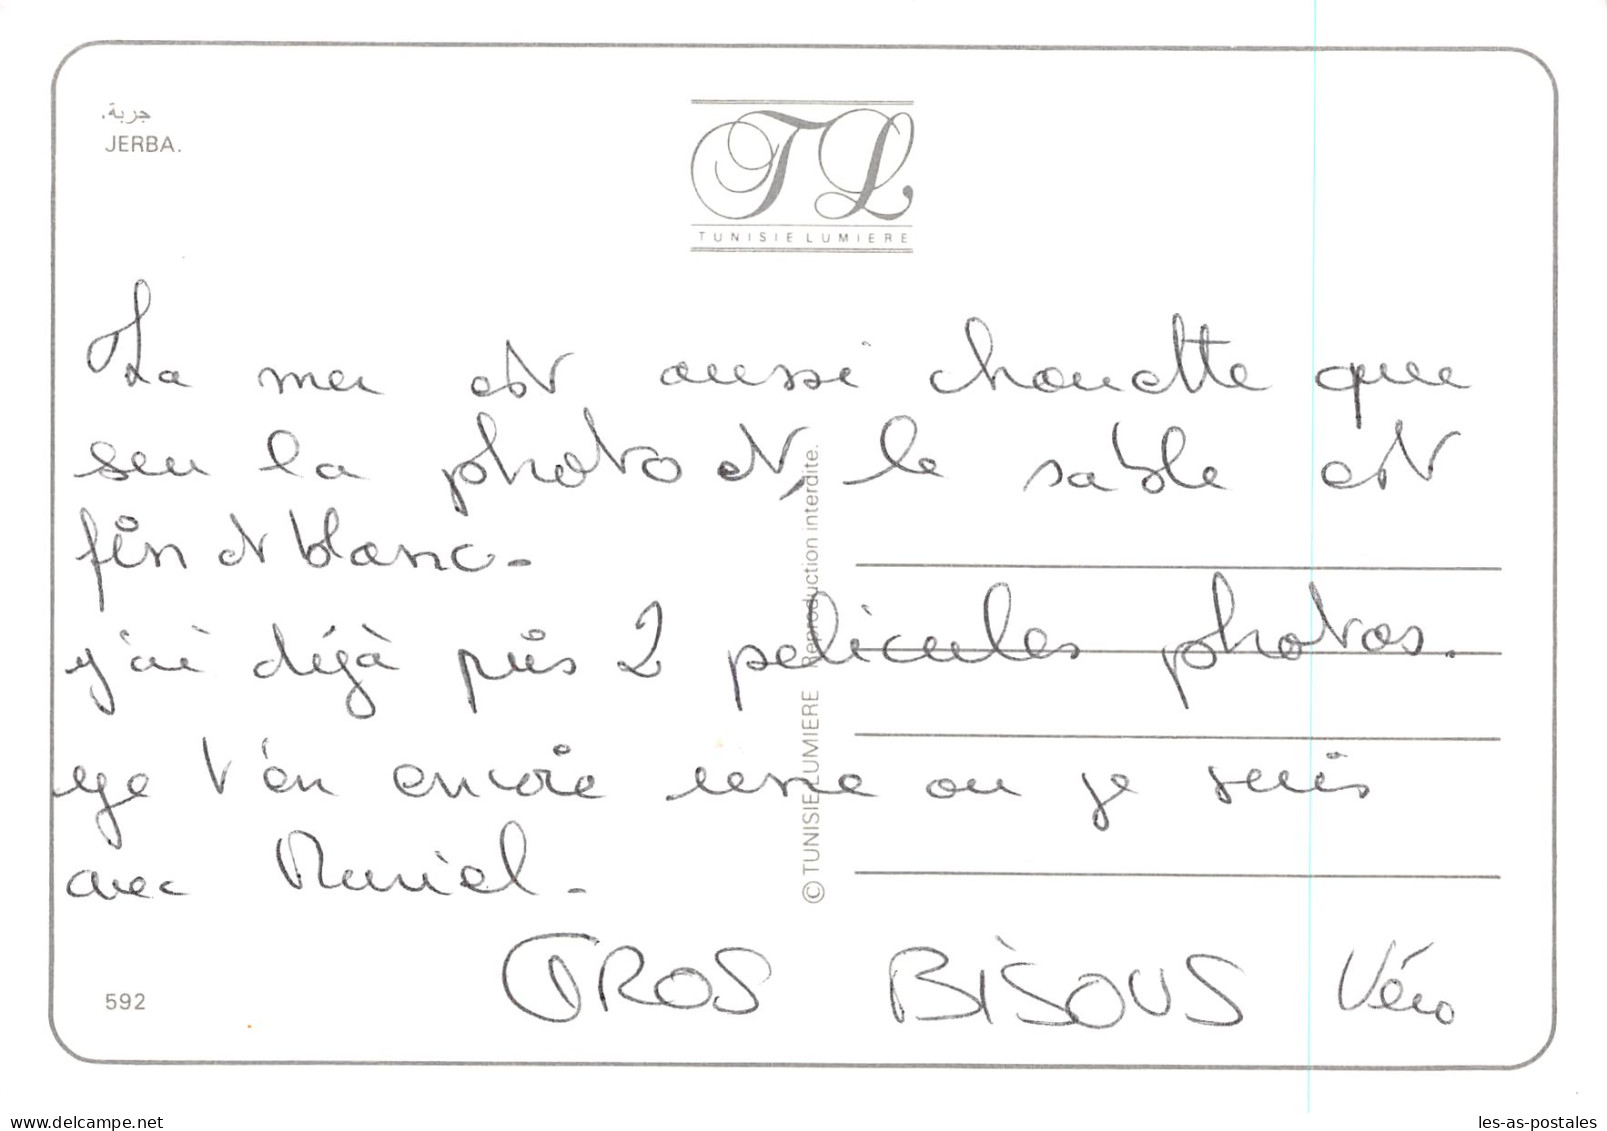 جربة.
JERBA.
TL
TUNISIE LUMIERE
La mer est aussi chouette que
sur la photo et, le sable est
fin et blanc -
j'ai déjà pris 2 pelicules photos.
je t'en envoie une ou je suis
avec Muriel -
GROS BISOUS Véro
© TUNISIE LUMIERE Reproduction interdite.
592
delcampe.net
les-as-postales